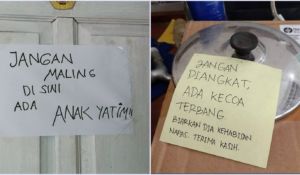 JANGAN
MALING
DI SINI
ADA
ANAK YATIM
JANGAN
DIANGKAT,
ADA KECOA
TERBANG
BIARKAN DIA KEHABISAN
NAPAS. TERIMA KASIH.